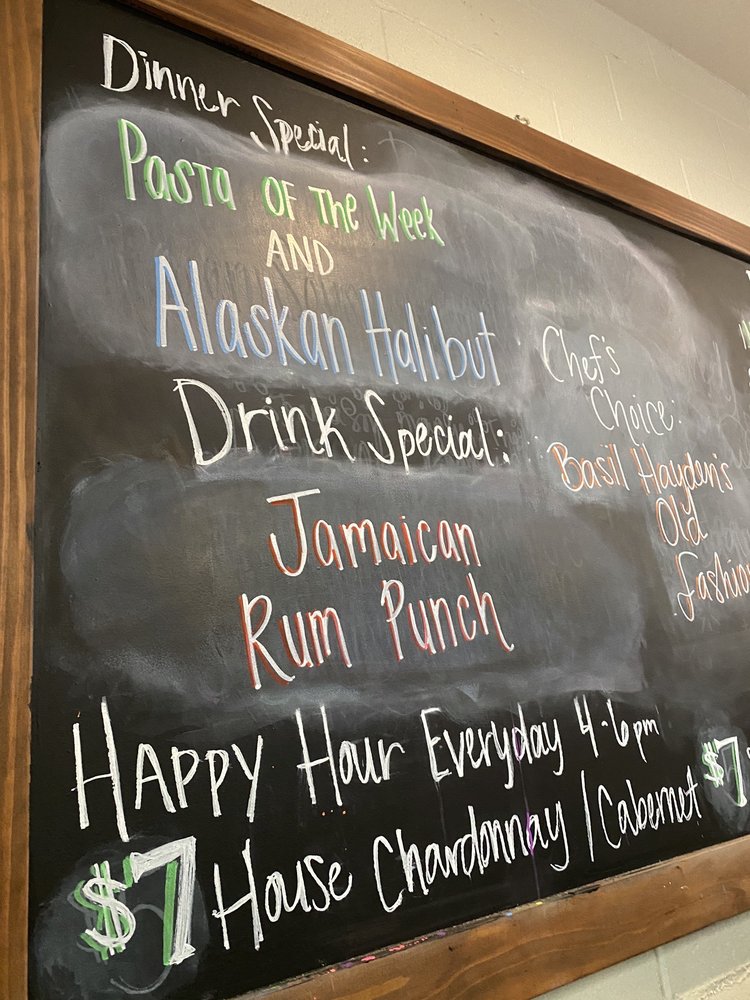 Dinner Special:
Pasta of the Week
AND
Alaskan Halibut
Drink Special:
Jamaican
Rum Punch
Chef's
Choice:
Basil Hayden's
Old
Fashion
Happy Hour Everyday 4-6pm
$7 House Chardonnay / Cabernet
$7